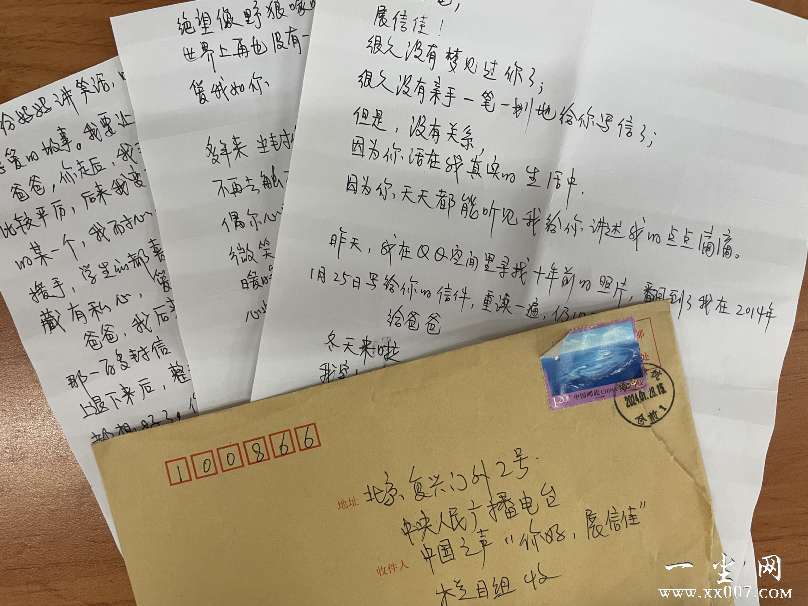 给妈妈讲笑话,
爱的故事。我要让
爸爸,你走后,我
比较平厉,后来我要
的某一个,我而
播手,学生们都
藏有私心,
爸爸,我后
那一百多封信
上退下来后,整
绝望像野狼嚎
世界上再也没有一
爱我如你
多年来
不再去触
偶尔心
微笑
展信佳!
很久没有梦见过你了;
很久没有亲手一笔一划地给你写信了;
但是,没有关系,
因为你活在我真实的生活中.
因为你,天天都能听见我给你讲述我的点点滴滴。
昨天,我在QQ空间里寻找十年前的照片,翻到了我在2014年
1月25日写给你的信件,重读一遍,仍
给爸爸
冬天来啦
1.20
中国邮政 CHINA
2024.01.23.18
100866
地址 北京复兴门外2号.
中央人民广播电台
收件人 中国之声“你好,展信佳”
栏目组 收
一尘网
www.xx007.com